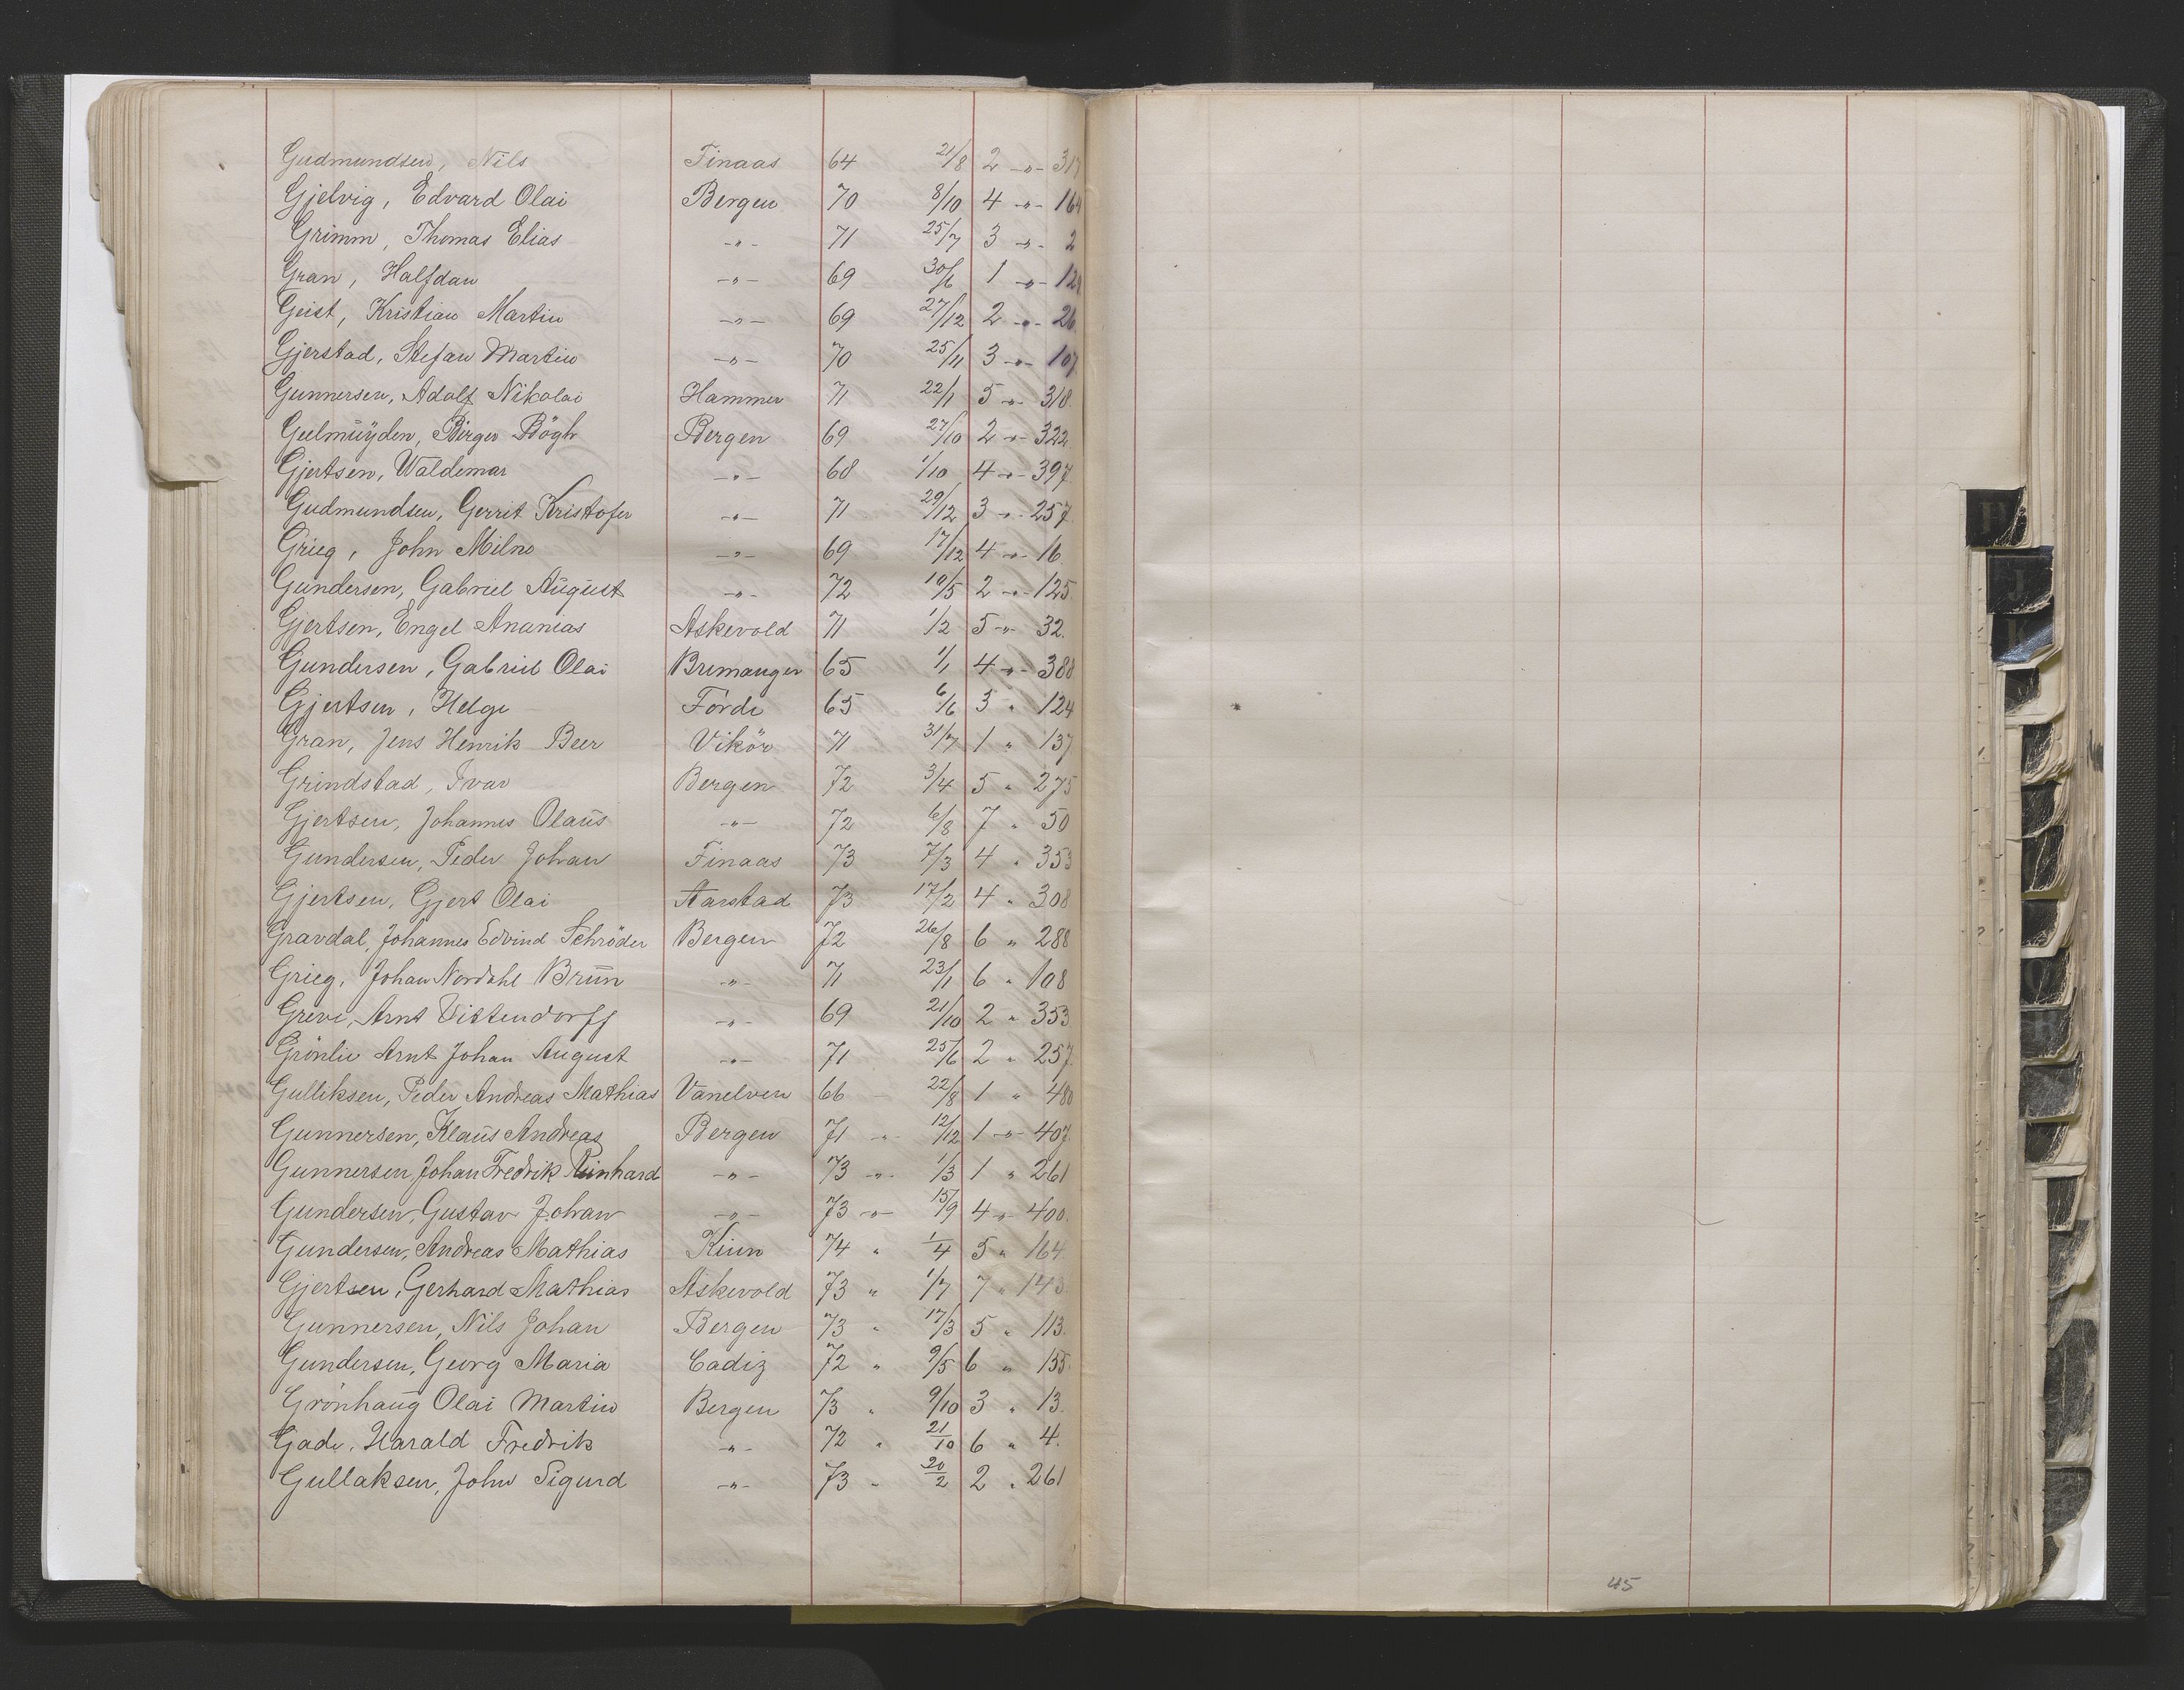 Gudmundsen, Nils Finaas 64 21/8 2 -"- 317
Gjelvig, Edvard Olai Bergen 70 8/10 4 -"- 164
Grimm, Thomas Elias -"- 71 25/7 3 -"- 2
Gran, Halfdan -"- 69 30/6 1 -"- 128
Geist, Kristian Martin -"- 69 27/12 2 -"- 26.
Gjerstad, Stefan Martin -"- 70 25/11 3 -"- 107.
Gunnersen, Adolf Nikolai Hammer 71 22/1 5 -"- 318.
Geelmüyden, Birger Bögh Bergen 69 27/10 2 -"- 322
Gjertsen, Waldemar -"- 68 1/10 4 -"- 397
Gudmundsen, Gerrit Kristofer -"- 71 29/12 3 -"- 257.
Grieg, John Milne -"- 69 17/12 4 -"- 16
Gundersen, Gabriel August -"- 72 10/5 2 -"- 125
Gjertsen, Engel Ananias Askevold 71 1/2 5 -"- 32.
Gundersen, Gabriel Olai Bremanger 65 1/1 4 -"- 388
Gjertsen, Helge Förde 65 6/6 3 " 124
Gran, Jens Henrik Beer Vikör 71 31/7 1 " 137
Grindstad, Ivar Bergen 72 3/4 5 " 275
Gjertsen, Johannes Olaus -"- 72 6/8 7 " 50
Gundersen, Peder Johan Finaas 73 7/3 4 " 353
Gjertsen, Gjert Olai Aarstad 73 17/2 4 " 308
Gravdal, Johannes Edvind Schröder Bergen 72 26/8 6 " 288
Grieg, Johan Nordahl Brun -"- 71 23/1 6 " 108
Greve, Arnt Vittendorff -"- 69 21/10 2 " 353
Grönlie Arnt Johan August -"- 71 25/6 2 " 257.
Gulliksen, Peder Andreas Mathias Vanelven 66 22/8 1 " 480
Gunnersen, Klaus Andreas Bergen 71 -"- 12/12 1 -"- 407.
Gunnersen, Johan Fredrik Reinhard -"- 73 -"- 1/3 1 " 261
Gundersen, Gustav Johan -"- 73 -"- 15/9 4 -"- 400.
Gundersen, Andreas Mathias Kinn 74 " 1/4 5 " 164.
Gjertsen, Gerhard Mathias Askevold 73 " 1/7 7 " 143.
Gunnersen, Nils Johan Bergen 73 " 17/3 5 " 113.
Gundersen, Georg Maria Cadiz 72 " 9/5 6 " 155.
Grönhaug Olai Martin Bergen 73 " 9/10 3 " 13.
Gade, Harald Fredrik -"- 72 " 21/10 6 " 4.
Gullaksen, John Sigurd -"- 73 " 20/2 2 " 261
45
J
K